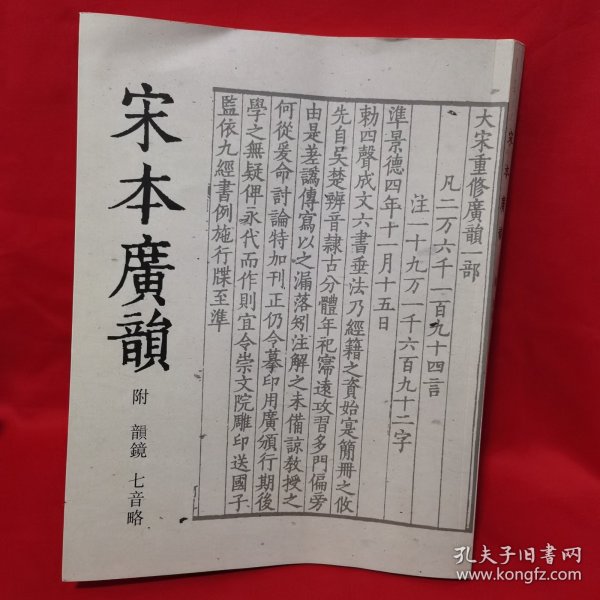 宋本廣韻
附 韻鏡 七音略
大宋重修廣韻一部
凡二万六千一百九十四言
注一十九万一千六百九十二字
準景德四年十一月十五日
勅四聲成文六書垂法乃經籍之資始寔簡冊之攸
先自吳楚辨音隷古分體年祀寖遠攻習多門偏旁
由是差譌傳寫以之漏落矧注解之未備諒敎授之
何從爰命討論特加刊正仍令摹印用廣頒行期後
學之無疑俾永代而作則宜令崇文院雕印送國子
監依九經書例施行牒至準
宋本廣韻
孔夫子旧书网
www.kongfz.com